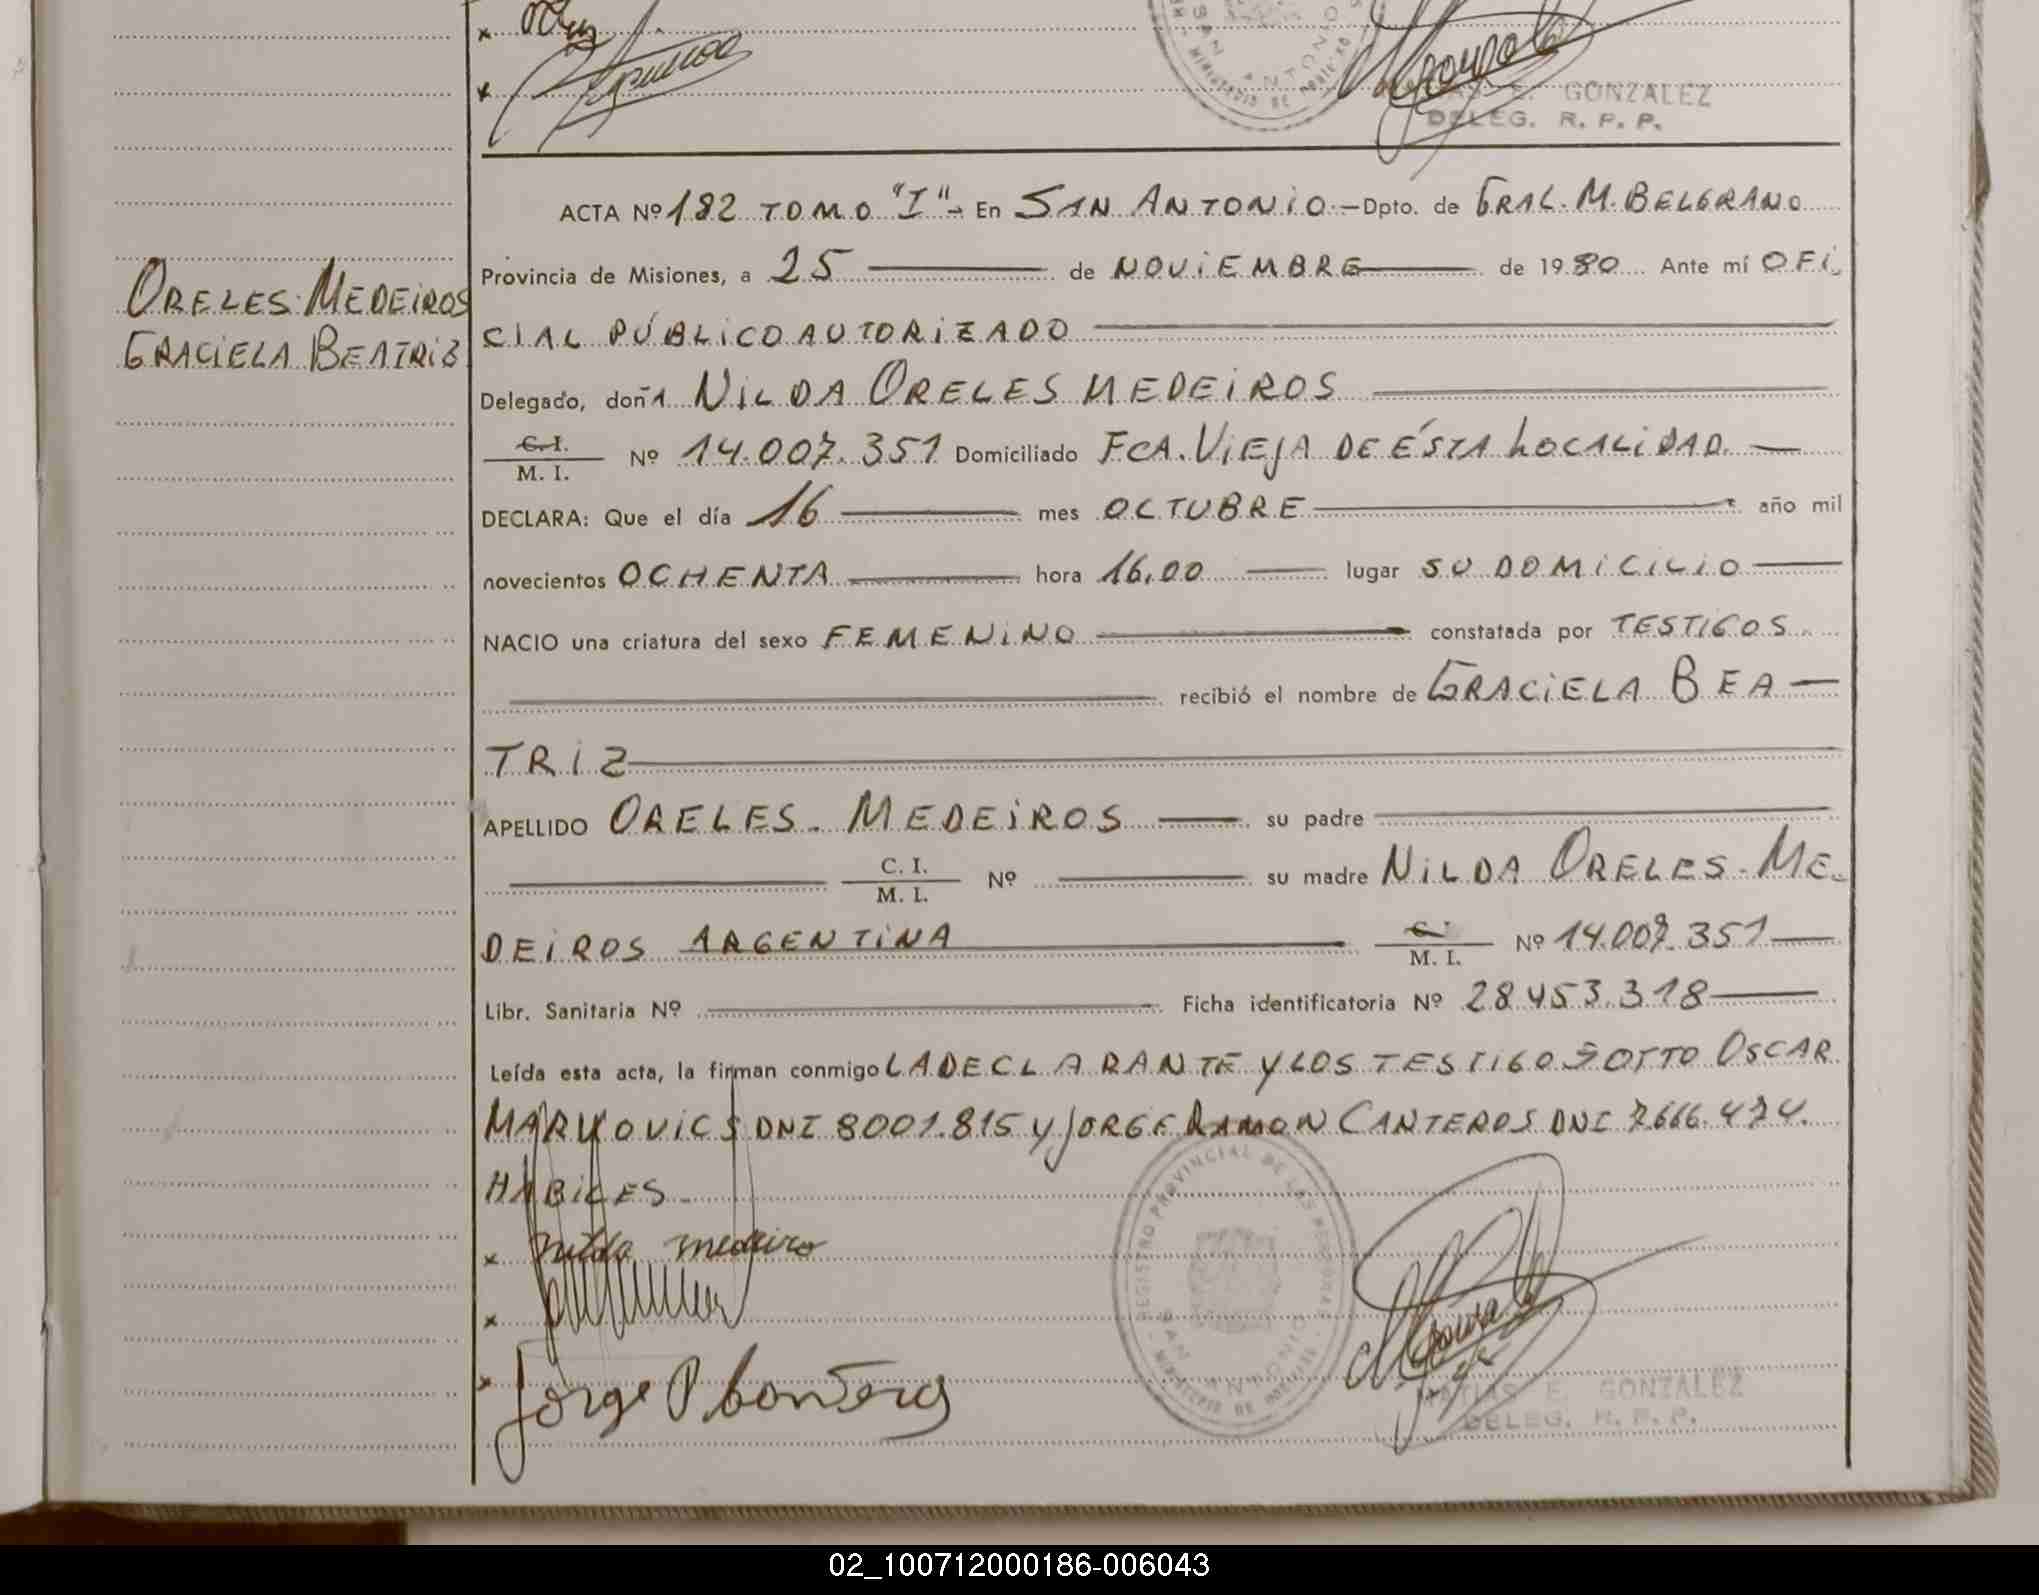 GONZALEZ
DELEG. R. P. P.
ACTA Nº 182 TOMO "I" - En SAN ANTONIO - Dpto. de GRAL. M. BELGRANO
Provincia de Misiones, a 25 de NOVIEMBRE de 1980 Ante mí OFI
ORELES MEDEIROS
GRACIELA BEATRIZ
CIAL PÚBLICO AUTORIZADO
Delegado, doña NILDA ORELES MEDEIROS
C. I.
M. I. Nº 14.007.351 Domiciliado FCA. VIEJA DE ÉSTA LOCALIDAD.
DECLARA: Que el día 16 mes OCTUBRE año mil
novecientos OCHENTA hora 16,00 lugar SU DOMICILIO
NACIO una criatura del sexo FEMENINO constatada por TESTIGOS
recibió el nombre de GRACIELA BEA
TRIZ
APELLIDO ORELES - MEDEIROS su padre
C. I.
M. I. Nº su madre NILDA ORELES - ME-
DEIROS ARGENTINA M. I. Nº 14.007.351
Libr. Sanitaria Nº Ficha identificatoria Nº 28.453.318
Leída esta acta, la firman conmigo LA DECLARANTE Y LOS TESTIGOS OTTO OSCAR
MARKOVICS DNI 8001.815 y JORGE RAMON CANTEROS DNI 7666.474.
HABILES -
x Nilda medeiro
x
x Jorge
REGISTRO PROVINCIAL DE LAS PERSONAS
SAN ANTONIO
MATIAS E. GONZALEZ
DELEG. R. P. P.
02_100712000186-006043